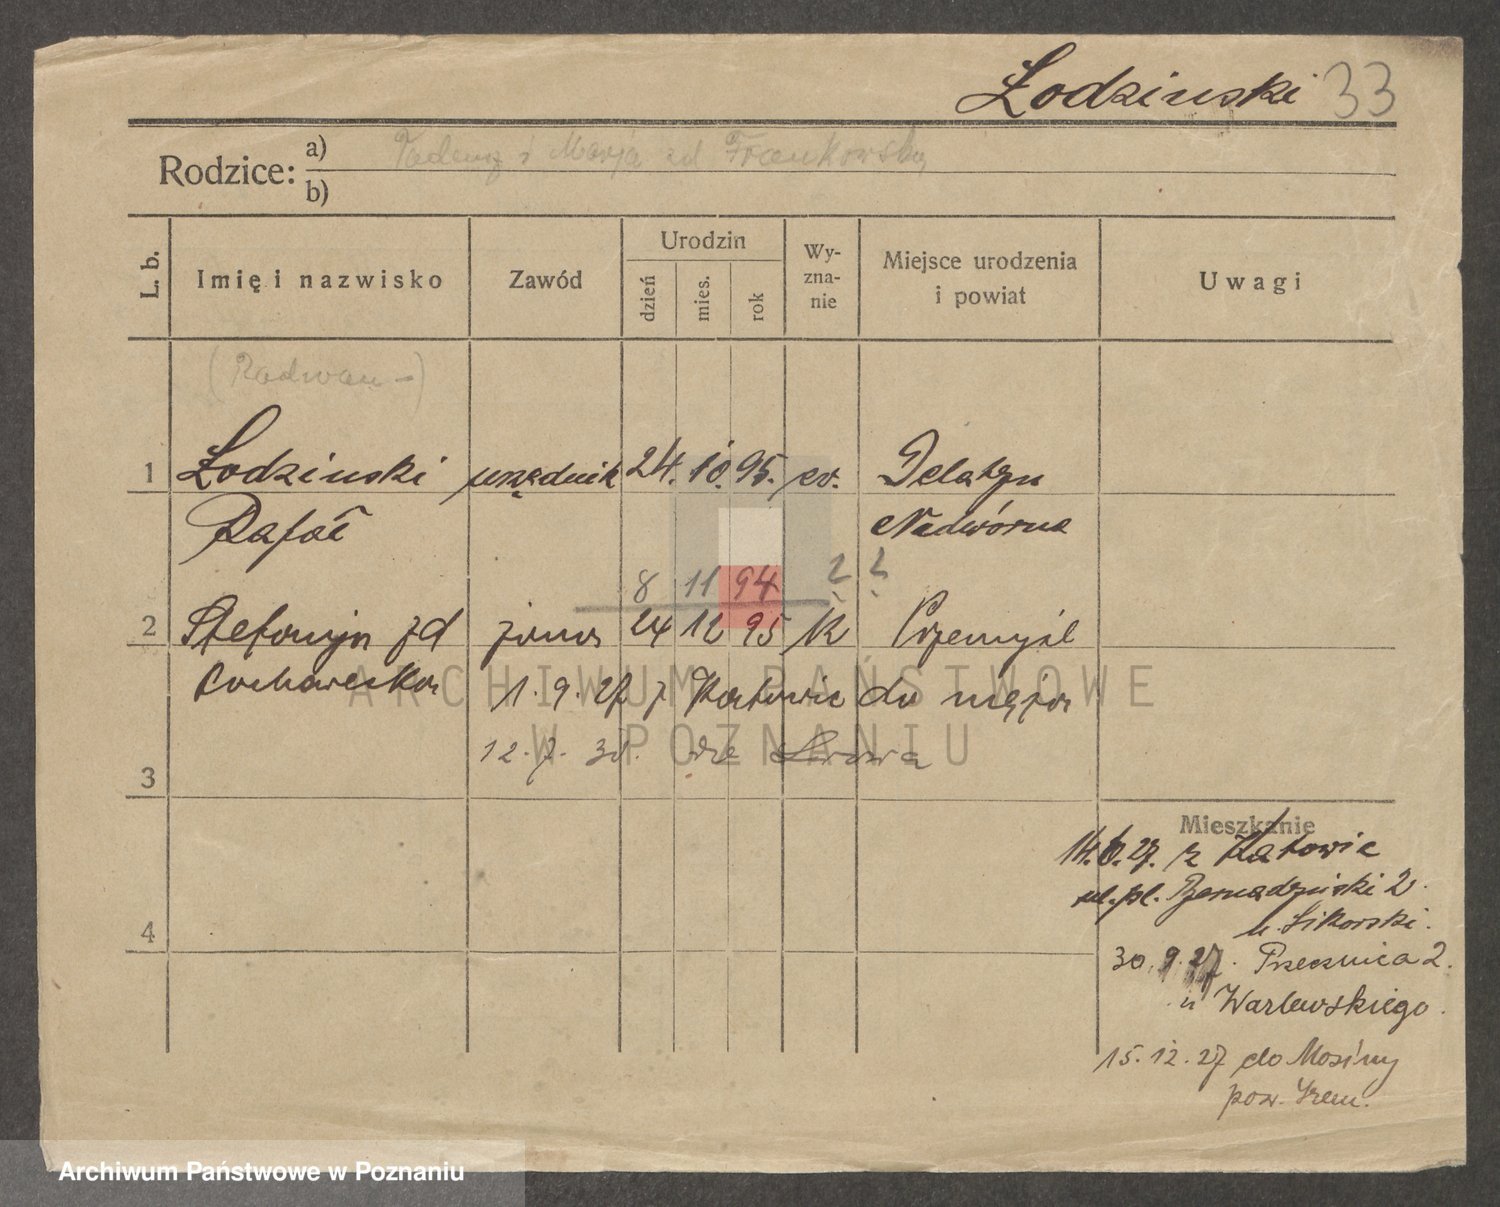 Łodzinski 33
Rodzice: a) Tadeusz i Marja zd Frankowsky
b)
L. b. Imię i nazwisko Zawód Urodzin dzień mies. rok Wy-zna-nie Miejsce urodzenia i powiat Uwagi
(Radwan-)
1 Łodzinski urzędnik 24. 10. 95. ev. Delatyn
Rafał Nadwórna
8 11 94 ? ?
2 Stefanja zd żona 24 12 95 K Przemyśl
1. 9. 27 z Katowic do męża
12. 7. 30. do Lwowa
3
Mieszkanie
14.6.27. z Katowic
ul. pl. Bernadzinski 2.
u. Sikorski.
4
30.9.27. Przecznica 2.
u Warlewskiego.
15.12.27 do Mosiny
pow. Srem.
ARCHIWUM PAŃSTWOWE
W POZNANIU
Archiwum Państwowe w Poznaniu